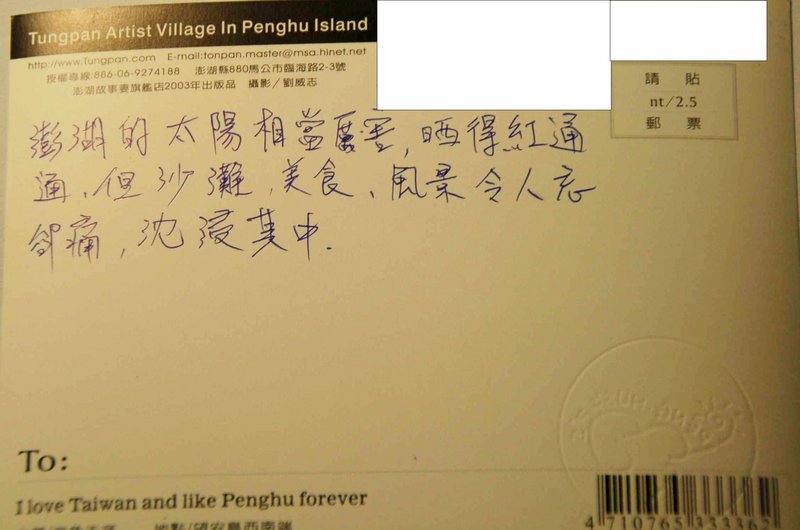 Tungpan Artist Village In Penghu Island
http://www.Tungpan.com E-mail:tonpan.master@msa.hinet.net
授權專線:886-06-9274188 澎湖縣880馬公市臨海路2-3號
澎湖故事妻旗艦店2003年出版品 攝影/劉威志
請貼
nt/2.5
郵票
澎湖的太陽相當厲害,晒得紅通
通,但沙灘、美食、風景令人忘
卻痛,沈浸其中.
To:
I love Taiwan and like Penghu forever
地點/望安島西南端
4 710765 333362